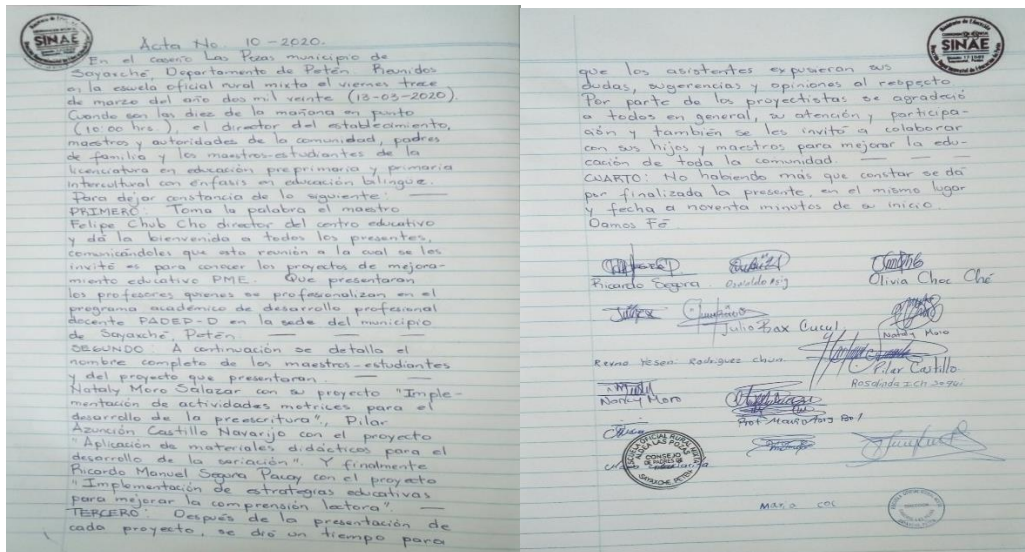 SINAE
Acta No. 10-2020.
En el caserío Las Pozas municipio de
Sayaxché, Departamento de Petén. Reunidos
en la escuela oficial rural mixta el viernes trece
de marzo del año dos mil veinte (13-03-2020).
Cuando son las diez de la mañana en punto
(10:00 hrs.), el director del establecimiento,
maestros y autoridades de la comunidad, padres
de familia y los maestros-estudiantes de la
licenciatura en educación preprimaria y primaria
intercultural con énfasis en educación bilingüe.
Para dejar constancia de lo siguiente:
PRIMERO: Toma la palabra el maestro
Felipe Chub Cho director del centro educativo
y dá la bienvenida a todos los presentes,
comunicándoles que esta reunión a la cual se les
invitó es para conocer los proyectos de mejora-
miento educativo PME. Que presentaran
los profesores quienes se profesionalizan en el
programa académico de desarrollo profesional
docente PADEP-D en la sede del municipio
de Sayaxché, Petén.
SEGUNDO: A continuación se detalla el
nombre completo de los maestros-estudiantes
y del proyecto que presentaran.
Nataly Moro Salazar con su proyecto "Imple-
mentación de actividades motrices para el
desarrollo de la preescritura", Pilar
Azunción Castillo Navarijo con el proyecto
"Aplicación de materiales didácticos para el
desarrollo de la seriación". Y finalmente
Ricardo Manuel Segura Pacay con el proyecto
"Implementación de estrategias educativas
para mejorar la comprensión lectora".
TERCERO: Después de la presentación de
cada proyecto, se dió un tiempo para
SINAE
que los asistentes expusieran sus
dudas, sugerencias y opiniones al respecto
Por parte de los proyectistas se agradeció
a todos en general, su atención y participa-
ción y también se les invitó a colaborar
con sus hijos y maestros para mejorar la edu-
cación de toda la comunidad.
CUARTO: No habiendo más que constar se dá
por finalizada la presente, en el mismo lugar
y fecha a noventa minutos de su inicio.
Damos Fé
Ricardo Segura
Olivia Choc Ché
Julio Bax Cucul
Nataly Moro
Reyna Yeseni Rodriguez Chun
Pilar Castillo
Rosalinda Ich
Nancy Moro
Prof. Mario
ESCUELA OFICIAL RURAL MIXTA
ALDEA LAS POZAS
CONSEJO
DE PADRES DE
SAYAXCHE, PETEN
Mario coc